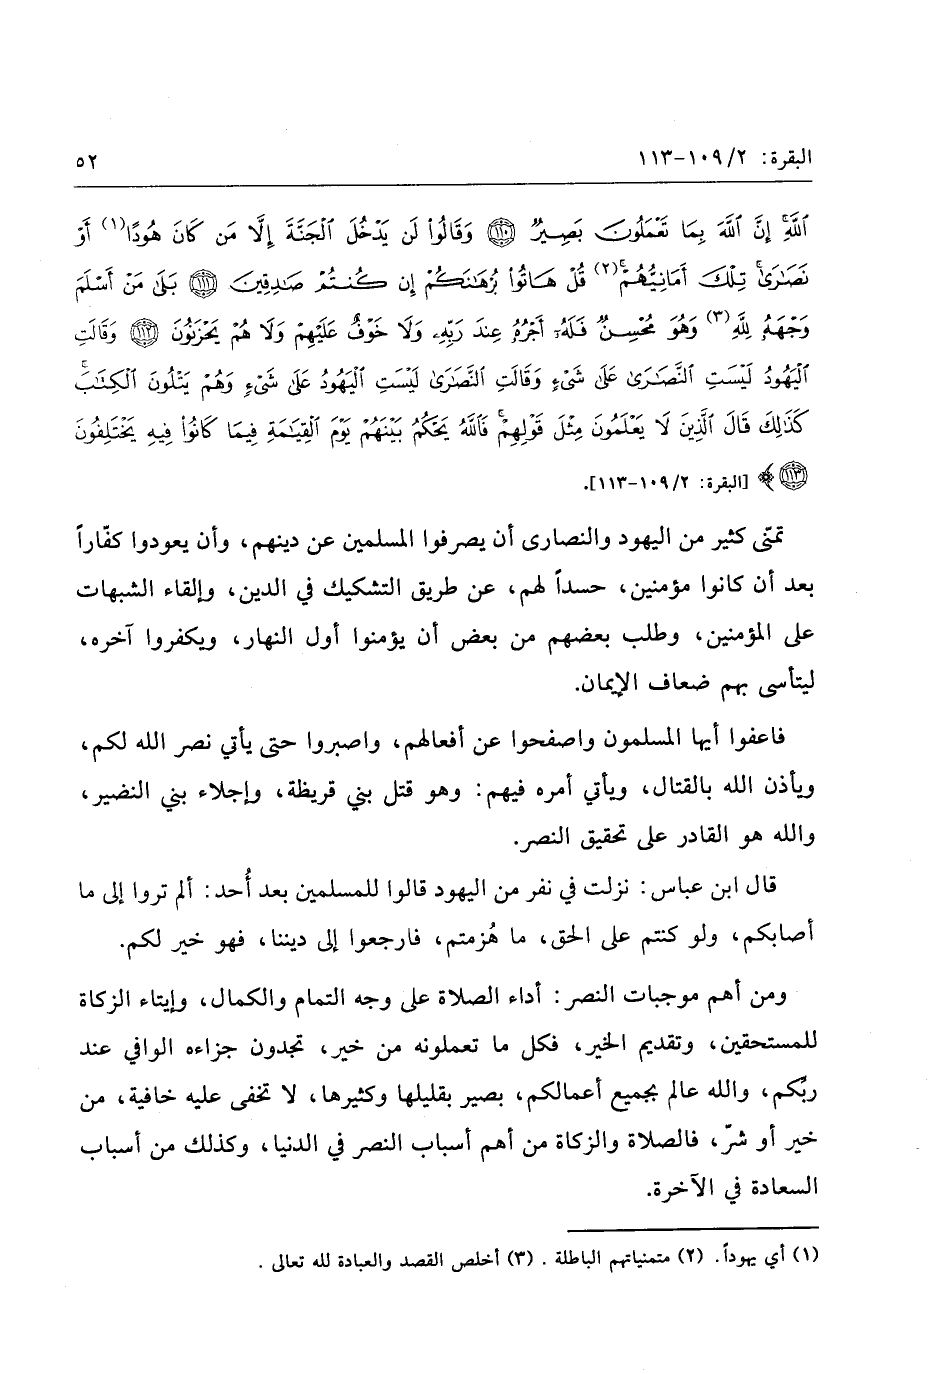 البقرة: ٢/ ١٠٩-١١٣ ٥٢
ٱللَّهِۗ إِنَّ ٱللَّهَ بِمَا تَعْمَلُونَ بَصِيرٌ ﴿١١٠﴾ وَقَالُوا۟ لَن يَدْخُلَ ٱلْجَنَّةَ إِلَّا مَن كَانَ هُودًا(١) أَوْ
نَصَٰرَىٰۗ تِلْكَ أَمَانِيُّهُمْۗ(٢) قُلْ هَاتُوا۟ بُرْهَٰنَكُمْ إِن كُنتُمْ صَٰدِقِينَ ﴿١١١﴾ بَلَىٰ مَنْ أَسْلَمَ
وَجْهَهُۥ لِلَّهِ(٣) وَهُوَ مُحْسِنٌ فَلَهُۥٓ أَجْرُهُۥ عِندَ رَبِّهِۦ وَلَا خَوْفٌ عَلَيْهِمْ وَلَا هُمْ يَحْزَنُونَ ﴿١١٢﴾ وَقَالَتِ
ٱلْيَهُودُ لَيْسَتِ ٱلنَّصَٰرَىٰ عَلَىٰ شَىْءٍ وَقَالَتِ ٱلنَّصَٰرَىٰ لَيْسَتِ ٱلْيَهُودُ عَلَىٰ شَىْءٍ وَهُمْ يَتْلُونَ ٱلْكِتَٰبَۗ
كَذَٰلِكَ قَالَ ٱلَّذِينَ لَا يَعْلَمُونَ مِثْلَ قَوْلِهِمْۚ فَٱللَّهُ يَحْكُمُ بَيْنَهُمْ يَوْمَ ٱلْقِيَٰمَةِ فِيمَا كَانُوا۟ فِيهِ يَخْتَلِفُونَ
﴿١١٣﴾ ﴾ [البقرة: ٢/ ١٠٩-١١٣].
تمنّى كثير من اليهود والنصارى أن يصرفوا المسلمين عن دينهم، وأن يعودوا كفّاراً
بعد أن كانوا مؤمنين، حسداً لهم، عن طريق التشكيك في الدين، وإلقاء الشبهات
على المؤمنين، وطلب بعضهم من بعض أن يؤمنوا أول النهار، ويكفروا آخره،
ليتأسى بهم ضعاف الإيمان.
فاعفوا أيها المسلمون واصفحوا عن أفعالهم، واصبروا حتى يأتي نصر الله لكم،
ويأذن الله بالقتال، ويأتي أمره فيهم: وهو قتل بني قريظة، وإجلاء بني النضير،
والله هو القادر على تحقيق النصر.
قال ابن عباس: نزلت في نفر من اليهود قالوا للمسلمين بعد أُحد: ألم تروا إلى ما
أصابكم، ولو كنتم على الحق، ما هُزمتم، فارجعوا إلى ديننا، فهو خير لكم.
ومن أهم موجبات النصر: أداء الصلاة على وجه التمام والكمال، وإيتاء الزكاة
للمستحقين، وتقديم الخير، فكل ما تعملونه من خير، تجدون جزاءه الوافي عند
ربّكم، والله عالم بجميع أعمالكم، بصير بقليلها وكثيرها، لا تخفى عليه خافية، من
خير أو شرّ، فالصلاة والزكاة من أهم أسباب النصر في الدنيا، وكذلك من أسباب
السعادة في الآخرة.
(١) أي يهوداً. (٢) متمنياتهم الباطلة . (٣) أخلص القصد والعبادة لله تعالى .